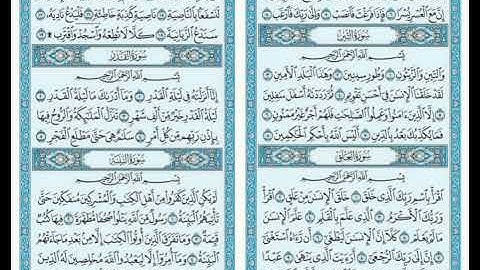 إِنَّ مَعَ ٱلْعُسْرِ يُسْرًا ٦ فَإِذَا فَرَغْتَ فَٱنصَبْ ٧ وَإِلَىٰ رَبِّكَ فَٱرْغَب ٨
سُورَةُ التِّينِ
بِسْمِ ٱللَّهِ ٱلرَّحْمَٰنِ ٱلرَّحِيمِ
وَٱلتِّينِ وَٱلزَّيْتُونِ ١ وَطُورِ سِينِينَ ٢ وَهَٰذَا ٱلْبَلَدِ ٱلْأَمِينِ ٣
لَقَدْ خَلَقْنَا ٱلْإِنسَٰنَ فِىٓ أَحْسَنِ تَقْوِيمٍ ٤ ثُمَّ رَدَدْنَٰهُ أَسْفَلَ سَٰفِلِينَ ٥
إِلَّا ٱلَّذِينَ ءَامَنُوا۟ وَعَمِلُوا۟ ٱلصَّٰلِحَٰتِ فَلَهُمْ أَجْرٌ غَيْرُ مَمْنُونٍ ٦
فَمَا يُكَذِّبُكَ بَعْدُ بِٱلدِّينِ ٧ أَلَيْسَ ٱللَّهُ بِأَحْكَمِ ٱلْحَٰكِمِينَ ٨
سُورَةُ العَلَقِ
بِسْمِ ٱللَّهِ ٱلرَّحْمَٰنِ ٱلرَّحِيمِ
ٱقْرَأْ بِٱسْمِ رَبِّكَ ٱلَّذِى خَلَقَ ١ خَلَقَ ٱلْإِنسَٰنَ مِنْ عَلَقٍ ٢ ٱقْرَأْ
وَرَبُّكَ ٱلْأَكْرَمُ ٣ ٱلَّذِى عَلَّمَ بِٱلْقَلَمِ ٤ عَلَّمَ ٱلْإِنسَٰنَ
مَا لَمْ يَعْلَمْ ٥ كَلَّآ إِنَّ ٱلْإِنسَٰنَ لَيَطْغَىٰٓ ٦ أَن رَّءَاهُ ٱسْتَغْنَىٰٓ
٧ إِنَّ إِلَىٰ رَبِّكَ ٱلرُّجْعَىٰٓ ٨ أَرَءَيْتَ ٱلَّذِى يَنْهَىٰ ٩ عَبْدًا
لَنَسْفَعًۢا بِٱلنَّاصِيَةِ ١٥ نَاصِيَةٍ كَٰذِبَةٍ خَاطِئَةٍ ١٦ فَلْيَدْعُ نَادِيَهُۥ ١٧
سَنَدْعُ ٱلزَّبَانِيَةَ ١٨ كَلَّا لَا تُطِعْهُ وَٱسْجُدْ وَٱقْتَرِب ۩ ١٩
سُورَةُ القَدْرِ
بِسْمِ ٱللَّهِ ٱلرَّحْمَٰنِ ٱلرَّحِيمِ
إِنَّآ أَنزَلْنَٰهُ فِى لَيْلَةِ ٱلْقَدْرِ ١ وَمَآ أَدْرَىٰكَ مَا لَيْلَةُ ٱلْقَدْرِ
٢ لَيْلَةُ ٱلْقَدْرِ خَيْرٌ مِّنْ أَلْفِ شَهْرٍ ٣ تَنَزَّلُ ٱلْمَلَٰٓئِكَةُ وَٱلرُّوحُ فِيهَا
بِإِذْنِ رَبِّهِم مِّن كُلِّ أَمْرٍ ٤ سَلَٰمٌ هِىَ حَتَّىٰ مَطْلَعِ ٱلْفَجْرِ ٥
سُورَةُ البَيِّنَةِ
بِسْمِ ٱللَّهِ ٱلرَّحْمَٰنِ ٱلرَّحِيمِ
لَمْ يَكُنِ ٱلَّذِينَ كَفَرُوا۟ مِنْ أَهْلِ ٱلْكِتَٰبِ وَٱلْمُشْرِكِينَ مُنفَكِّينَ حَتَّىٰ
تَأْتِيَهُمُ ٱلْبَيِّنَةُ ١ رَسُولٌ مِّنَ ٱللَّهِ يَتْلُوا۟ صُحُفًا مُّطَهَّرَةً ٢ فِيهَا كُتُبٌ
قَيِّمَةٌ ٣ وَمَا تَفَرَّقَ ٱلَّذِينَ أُوتُوا۟ ٱلْكِتَٰبَ إِلَّا مِنۢ بَعْدِ مَا جَآءَتْهُمُ
ٱلْبَيِّنَةُ ٤ وَمَآ أُمِرُوٓا۟ إِلَّا لِيَعْبُدُوا۟ ٱللَّهَ مُخْلِصِينَ لَهُ ٱلدِّينَ